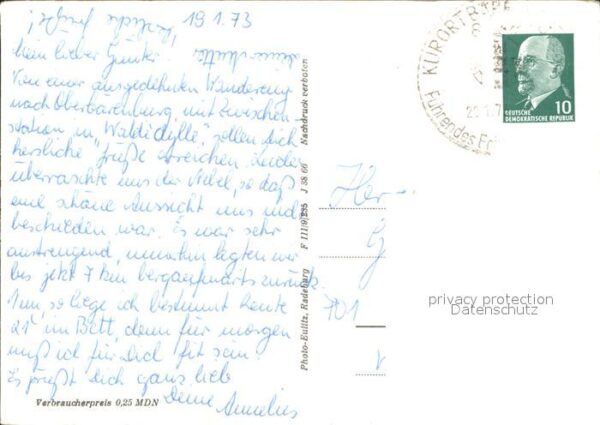 19.1.73
Mein lieber Günter!
Von einer ausgedehnten Wanderung
nach Oberbärenburg, mit Zwischen-
station in "Waldidylle" sollen Dich
herzliche Grüße erreichen. Leider
überraschte uns der Nebel, so daß
eine schöne Aussicht uns nicht
beschieden war. Es war sehr
anstrengend, immerhin legten wir
bis jetzt 7 km bergaufwärts zurück.
so liege ich bestimmt heute
21⁰⁰ im Bett, denn für morgen
muß ich für Dich fit sein.
Es grüßt Dich ganz lieb
Deine Annelies
Verbraucherpreis 0,25 MDN
Photo-Eulitz, Radeburg F 111/9/235 J 38 66 Nachdruck verboten
KURORT
Führendes
10
DEUTSCHE
DEMOKRATISCHE REPUBLIK
Herrn
701
privacy protection
Datenschutz